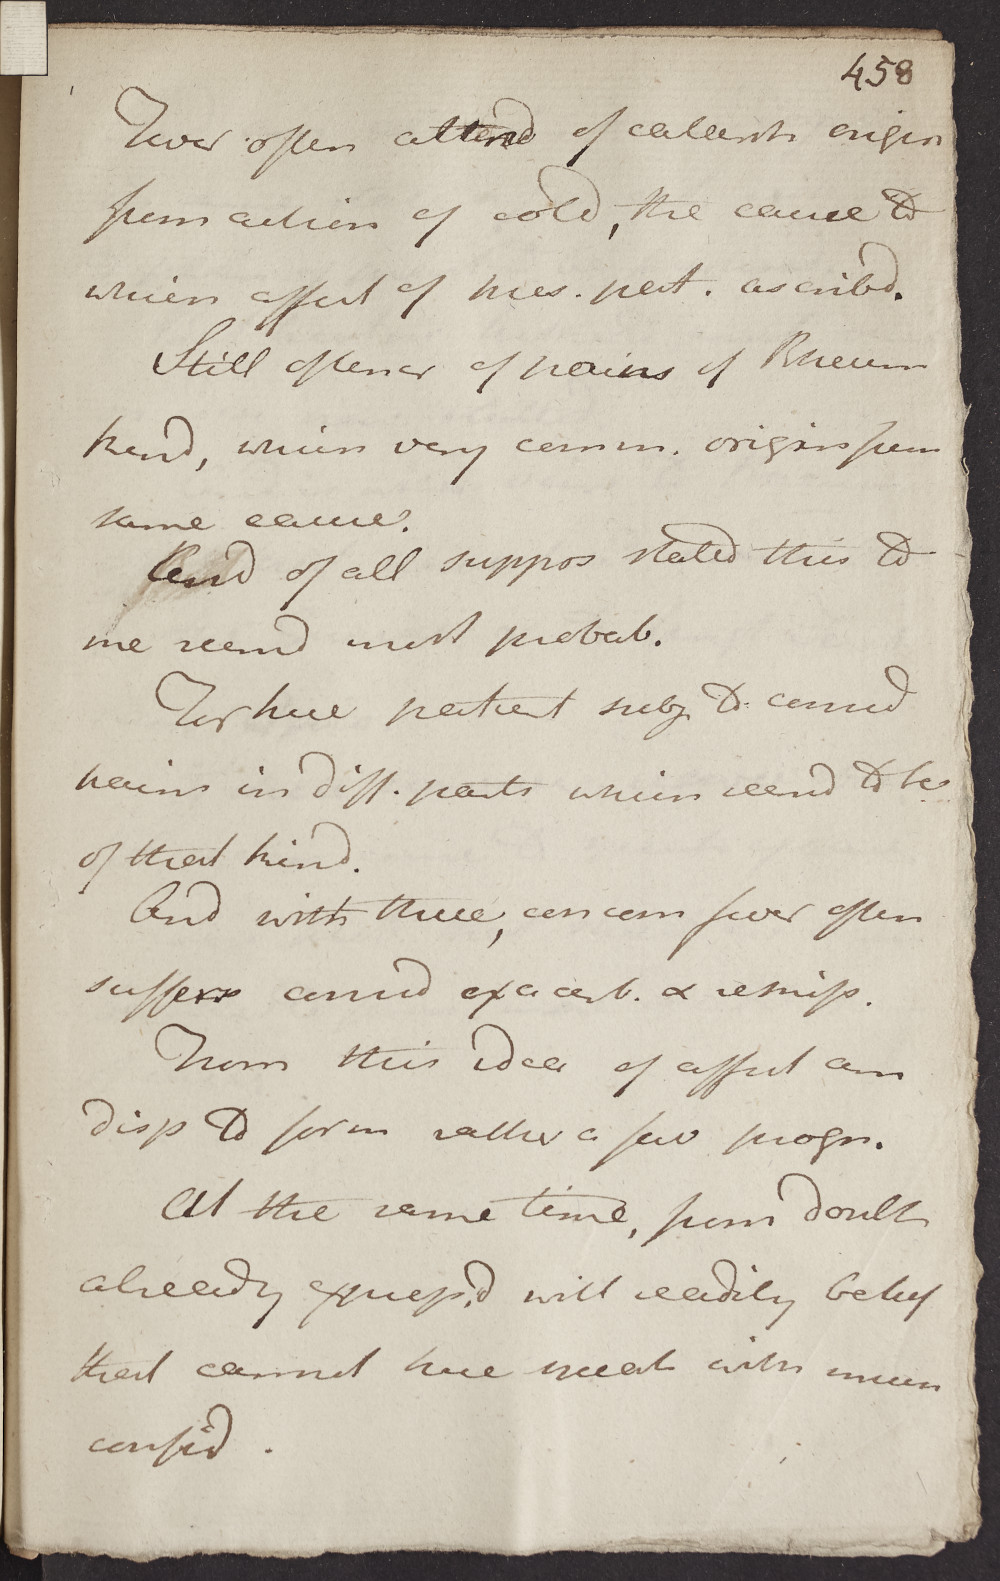 458
Fever often attend of catarrh origin
from action of cold, the cause to
which affect of pres. pat. ascribd.
Still oftener of pains of Rheum
kend, which very comm. origin from
same cause.
And of all suppos stated this to
me seemd most probab.
For here patient subj to connd
pains in diff. parts which seemd to be
of that kind.
And with these, concom fever often
suffers connd exacerb. & remiss.
From this idea of affect am
disp to form rather a fav progn.
At the same time, from doubts
already express'd will readily belief
that cannot here speak with much
confid.